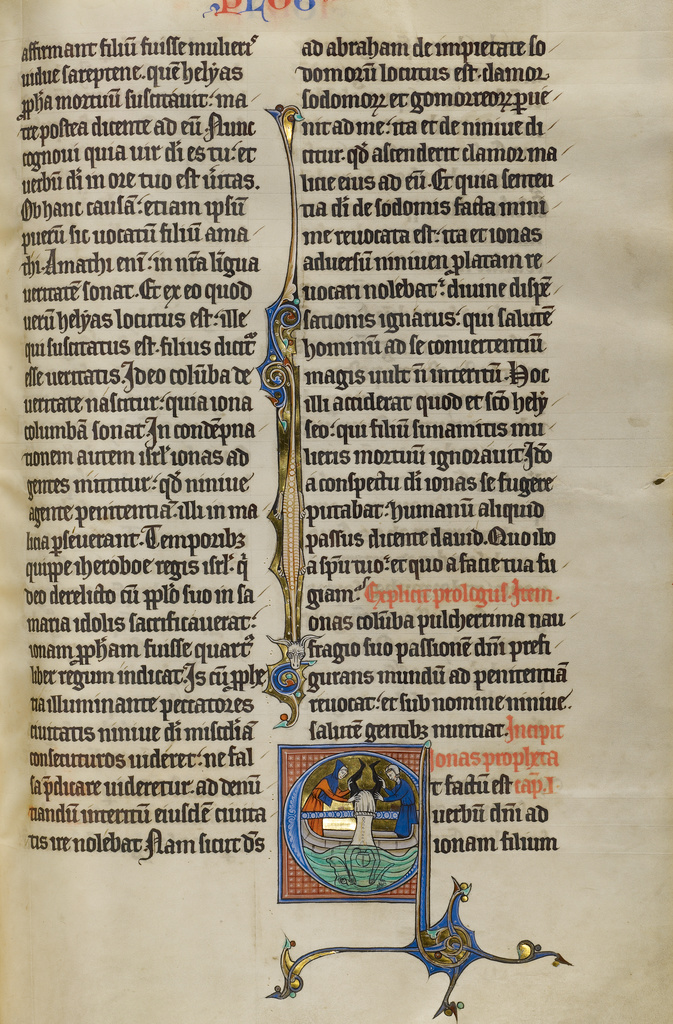 PLOG
affirmant filiū fuisse mulierꝭ
uidue sareptene. quē helyas
ꝓpha mortuū suscitauit: ma
tre postea dicente ad eū. Nunc
cognoui quia uir di es tu: et
uerbū di in ore tuo est ūitas.
Ob hanc causā: etiam ipsū
puerū sic uocatū filiū ama
thi. Amathi eni: in nr̄a ligua
ueritatē sonat. Et ex eo quod
uerū helyas locutus est: ille
qui suscitatus est. filius dicit᷑
esse ueritatis. Ideo colūba de
ueritate nascitur: quia iona
columbā sonat. In condēpna
tionem autem isrl̓ ionas ad
gentes mittitur: qd̄ niniue
agente penitentiā. illi in ma
licia ꝑseuerant. Temporibꝫ
quippe iheroboe regis isrl̓: q̄
deo derelicto cū ꝓplō suo in sa
maria idolis sacrificauerat:
ionam ꝓpham fuisse quart᷑
liber regum indicat. Is cū ꝓphe
tia illuminante peccatores
ciuitatis niniue di misc̄diā
consecuturos uideret: ne fal
sa p̄dicare uideretur. ad denū
tiandū interitū eiusdē ciuita
tis ire nolebat. Nam sicut d̄s
ad abraham de impietate so
domorū locutus est. clamor
sodomoꝝ et gomorreoꝝ ꝑue
nit ad me: ita et de niniue di
citur. qd̄ ascenderit clamor ma
licie eius ad eū. Et quia senten
tia di de sodomis facta mini
me reuocata est: ita et ionas
aduersū niniuen ꝓlatam re
uocari nolebat: diuine dispē
sationis ignarus: qui salutē
hominū ad se conuertentiū
magis uult n̄ interitū. Hoc
illi acciderat quod et sc̄o hely
seo: qui filiū sunamitis mu
lieris mortuū ignorauit. Id̄o
a conspectu di ionas se fugere
putabat: humanū aliquid
passus dicente dauid. Quo ibo
a spū tuo: et quo a facie tua fu
giam. Explicit prologus. Item.
Ionas colūba pulcherrima nau
fragio suo passionē dn̄i prefi
gurans mundū ad penitentiā
reuocat: et sub nomine niniue.
salutē gentibꝫ nuntiat. Incipit
ionas propheta
Et factū est cap̄. I.
uerbū dn̄i ad
ionam filium